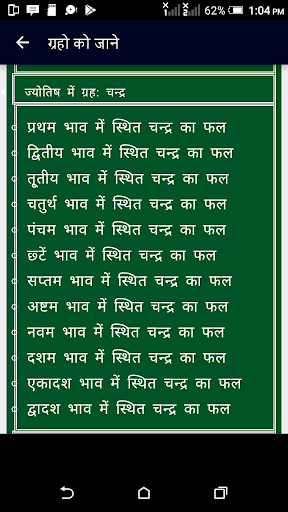 62% 1:04 PM
ग्रहो को जाने
ज्योतिष में ग्रह: चन्द्र
प्रथम भाव में स्थित चन्द्र का फल
द्वितीय भाव में स्थित चन्द्र का फल
तृ्तीय भाव में स्थित चन्द्र का फल
चतुर्थ भाव में स्थित चन्द्र का फल
पंचम भाव में स्थित चन्द्र का फल
छटें भाव में स्थित चन्द्र का फल
सप्तम भाव में स्थित चन्द्र का फल
अष्टम भाव में स्थित चन्द्र का फल
नवम भाव में स्थित चन्द्र का फल
दशम भाव में स्थित चन्द्र का फल
एकादश भाव में स्थित चन्द्र का फल
द्वादश भाव में स्थित चन्द्र का फल